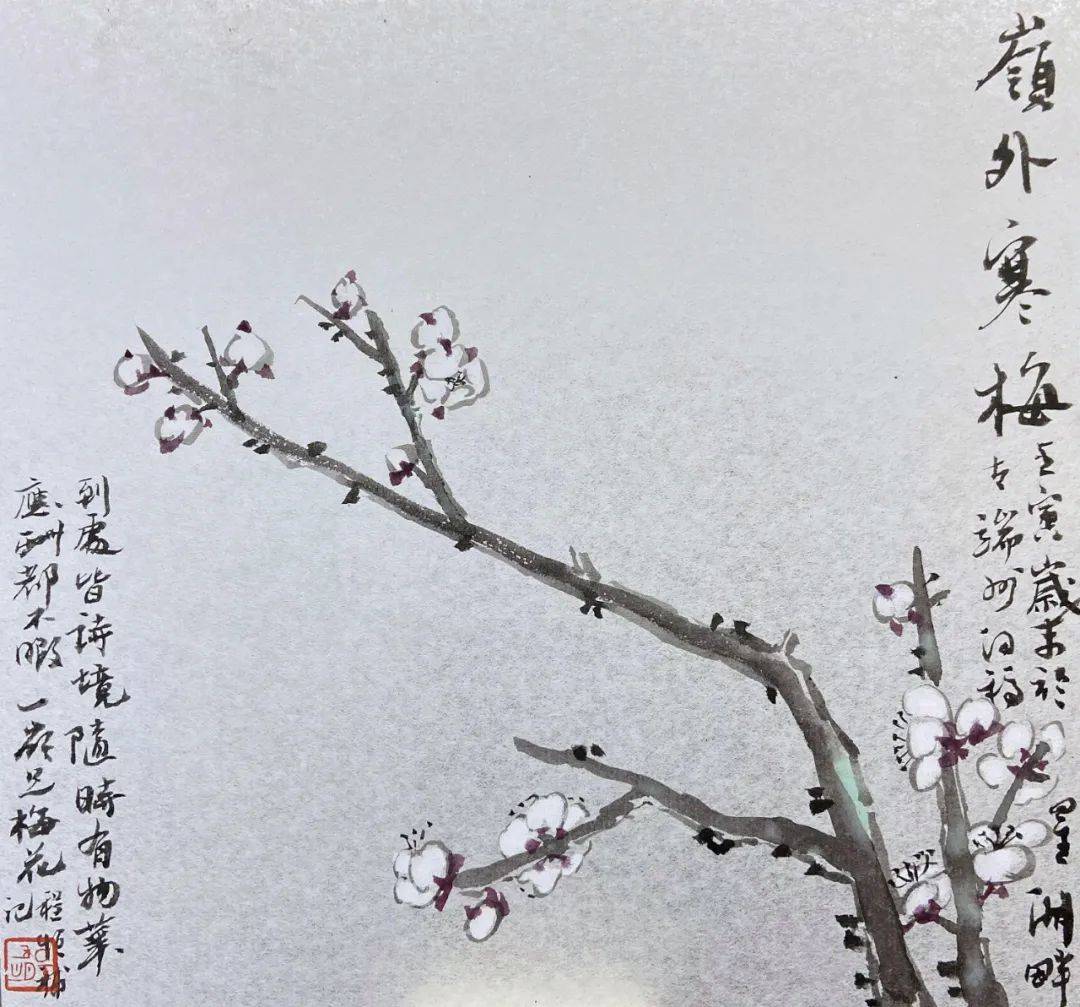 嶺外寒梅
壬寅歲末於星湖畔
古端州
到處皆詩境隨時有物華
應酬都不暇一嶺是梅花
程
記